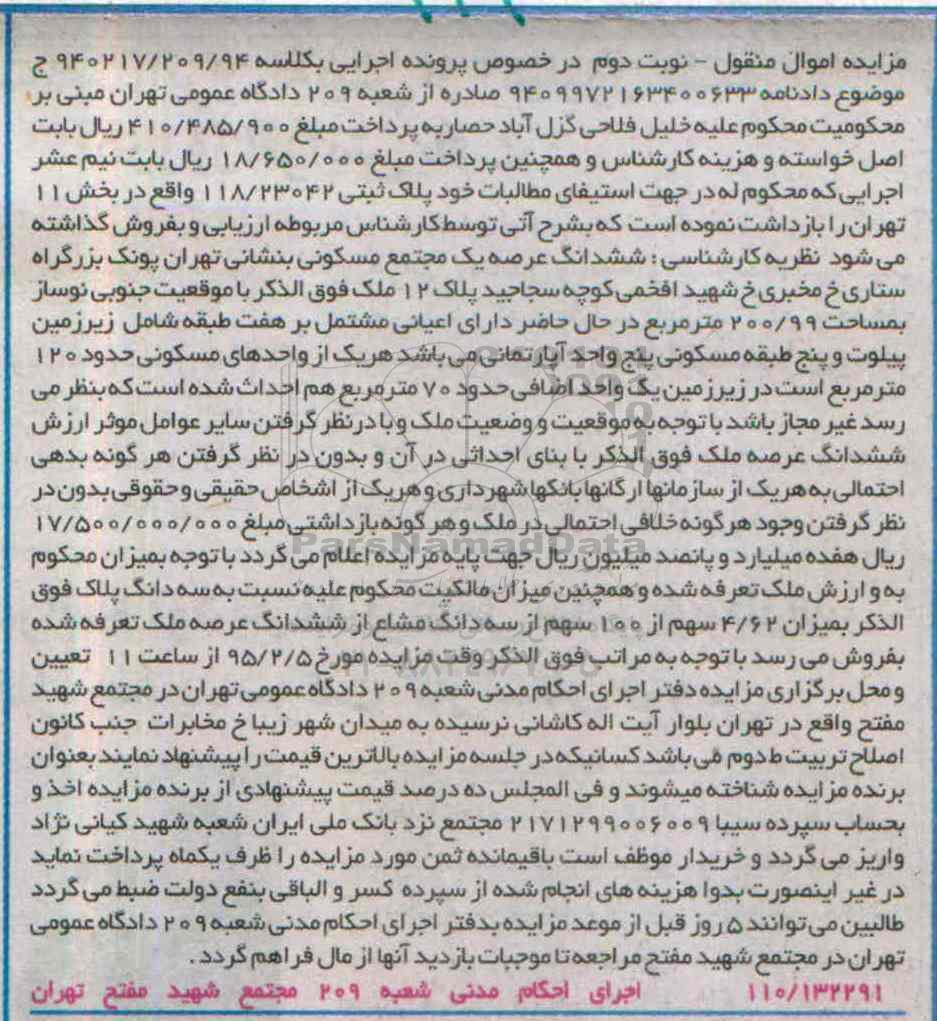 مزایده اموال منقول - نوبت دوم در خصوص پرونده اجرایی بکلاسه ۹۴۰۲۱۷/۲۰۹/۹۴ ج
موضوع دادنامه ۹۴۰۹۹۷۲۱۶۳۴۰۰۶۳۳ صادره از شعبه ۲۰۹ دادگاه عمومی تهران مبنی بر
محکومیت محکوم علیه خلیل فلاحی گزل آباد حصار به پرداخت مبلغ ۴۱۰/۴۸۵/۹۰۰ ریال بابت
اصل خواسته و هزینه کارشناس و همچنین پرداخت مبلغ ۱۸/۶۵۰/۰۰۰ ریال بابت نیم عشر
اجرایی که محکوم له در جهت استیفای مطالبات خود پلاک ثبتی ۱۱۸/۲۳۰۴۲ واقع در بخش ۱۱
تهران را بازداشت نموده است که بشرح آتی توسط کارشناس مربوطه ارزیابی و بفروش گذاشته
می شود نظریه کارشناسی : ششدانگ عرصه یک مجتمع مسکونی بنشانی تهران پونک بزرگراه
ستاری خ مخبری خ شهید افخمی کوچه سجاجید پلاک ۱۲ ملک فوق الذکر با موقعیت جنوبی نوساز
بمساحت ۲۰۰/۹۹ مترمربع در حال حاضر دارای اعیانی مشتمل بر هفت طبقه شامل زیرزمین
پیلوت و پنج طبقه مسکونی پنج واحد آپارتمانی می باشد هر یک از واحدهای مسکونی حدود ۱۲۰
مترمربع است در زیرزمین یک واحد اضافی حدود ۷۰ مترمربع هم احداث شده است که بنظر می
رسد غیر مجاز باشد با توجه به موقعیت و وضعیت ملک و با در نظر گرفتن سایر عوامل موثر ارزش
ششدانگ عرصه ملک فوق الذکر با بنای احداثی در آن و بدون در نظر گرفتن هر گونه بدهی
احتمالی به هر یک از سازمانها ارگانها بانکها شهرداری و هریک از اشخاص حقیقی و حقوقی بدون در
نظر گرفتن وجود هر گونه خلافی احتمالی در ملک و هر گونه بازداشتی مبلغ ۱۷/۵۰۰/۰۰۰/۰۰۰
ریال هفده میلیارد و پانصد میلیون ریال جهت پایه مزایده اعلام می گردد با توجه بمیزان محکوم
به و ارزش ملک تعرفه شده و همچنین میزان مالکیت محکوم علیه نسبت به سه دانگ پلاک فوق
الذکر بمیزان ۴/۶۲ سهم از ۱۰۰ سهم از سه دانگ مشاع از ششدانگ عرصه ملک تعرفه شده
بفروش می رسد با توجه به مراتب فوق الذکر وقت مزایده مورخ ۹۵/۲/۵ از ساعت ۱۱ تعیین
و محل برگزاری مزایده دفتر اجرای احکام مدنی شعبه ۲۰۹ دادگاه عمومی تهران در مجتمع شهید
مفتح واقع در تهران بلوار آیت اله کاشانی نرسیده به میدان شهر زیبا خ مخابرات جنب کانون
اصلاح تربیت ط دوم می باشد کسانیکه در جلسه مزایده بالاترین قیمت را پیشنهاد نمایند بعنوان
برنده مزایده شناخته میشوند و فی المجلس ده درصد قیمت پیشنهادی از برنده مزایده اخذ و
بحساب سپرده سیبا ۲۱۷۱۲۹۹۰۰۶۰۰۹ مجتمع نزد بانک ملی ایران شعبه شهید کیانی نژاد
واریز می گردد و خریدار موظف است باقیمانده ثمن مورد مزایده را ظرف یکماه پرداخت نماید
در غیر اینصورت بدوا هزینه های انجام شده از سپرده کسر و الباقی بنفع دولت ضبط می گردد
طالبین می توانند ۵ روز قبل از موعد مزایده بدفتر اجرای احکام مدنی شعبه ۲۰۹ دادگاه عمومی
تهران در مجتمع شهید مفتح مراجعه تا موجبات بازدید آنها از مال فراهم گردد .
۱۱۰/۱۳۲۲۹۱ اجرای احکام مدنی شعبه ۲۰۹ مجتمع شهید مفتح تهران
ParsNamadData